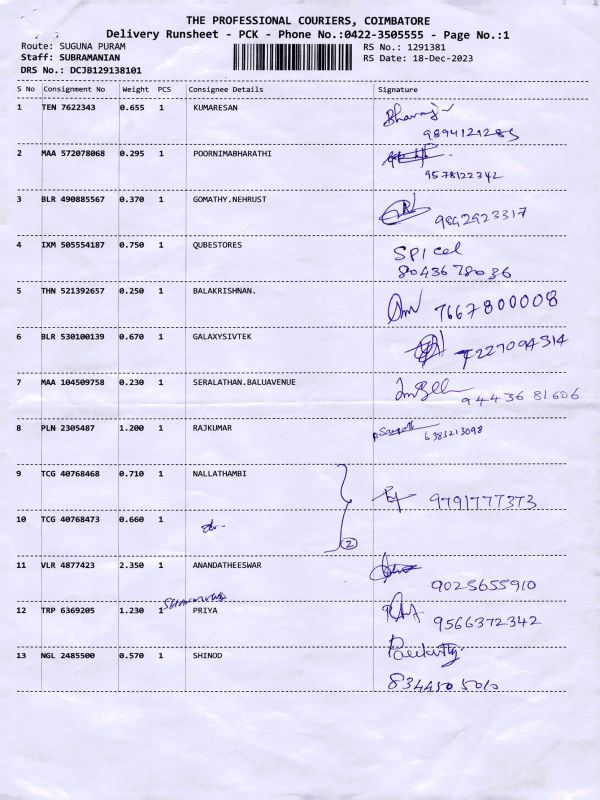 THE PROFESSIONAL COURIERS, COIMBATORE
Delivery Runsheet - PCK - Phone No.:0422-3505555 - Page No.:1
Route: SUGUNA PURAM RS No.: 1291381
Staff: SUBRAMANIAN RS Date: 18-Dec-2023
DRS No.: DCJB129138101
S No Consignment No Weight PCS Consignee Details Signature
1 TEN 7622343 0.655 1 KUMARESAN
9894121285
2 MAA 572078068 0.295 1 POORNIMABHARATHI
9578122342
3 BLR 490885567 0.370 1 GOMATHY.NEHRUST
9842923317
4 IXM 505554187 0.750 1 QUBESTORES
8043678036
5 THN 521392657 0.250 1 BALAKRISHNAN.
7667800008
6 BLR 530100139 0.670 1 GALAXYSIVTEK
7227094314
7 MAA 104509758 0.230 1 SERALATHAN.BALUAVENUE
9443681606
8 PLN 2305487 1.200 1 RAJKUMAR
6383213098
9 TCG 40768468 0.710 1 NALLATHAMBI
9791777373
10 TCG 40768473 0.660 1 do.
2
11 VLR 4877423 2.350 1 ANANDATHEESWAR
9025655910
12 TRP 6369205 1.230 1 PRIYA
9566372342
13 NGL 2485500 0.570 1 SHINOD
8344505010